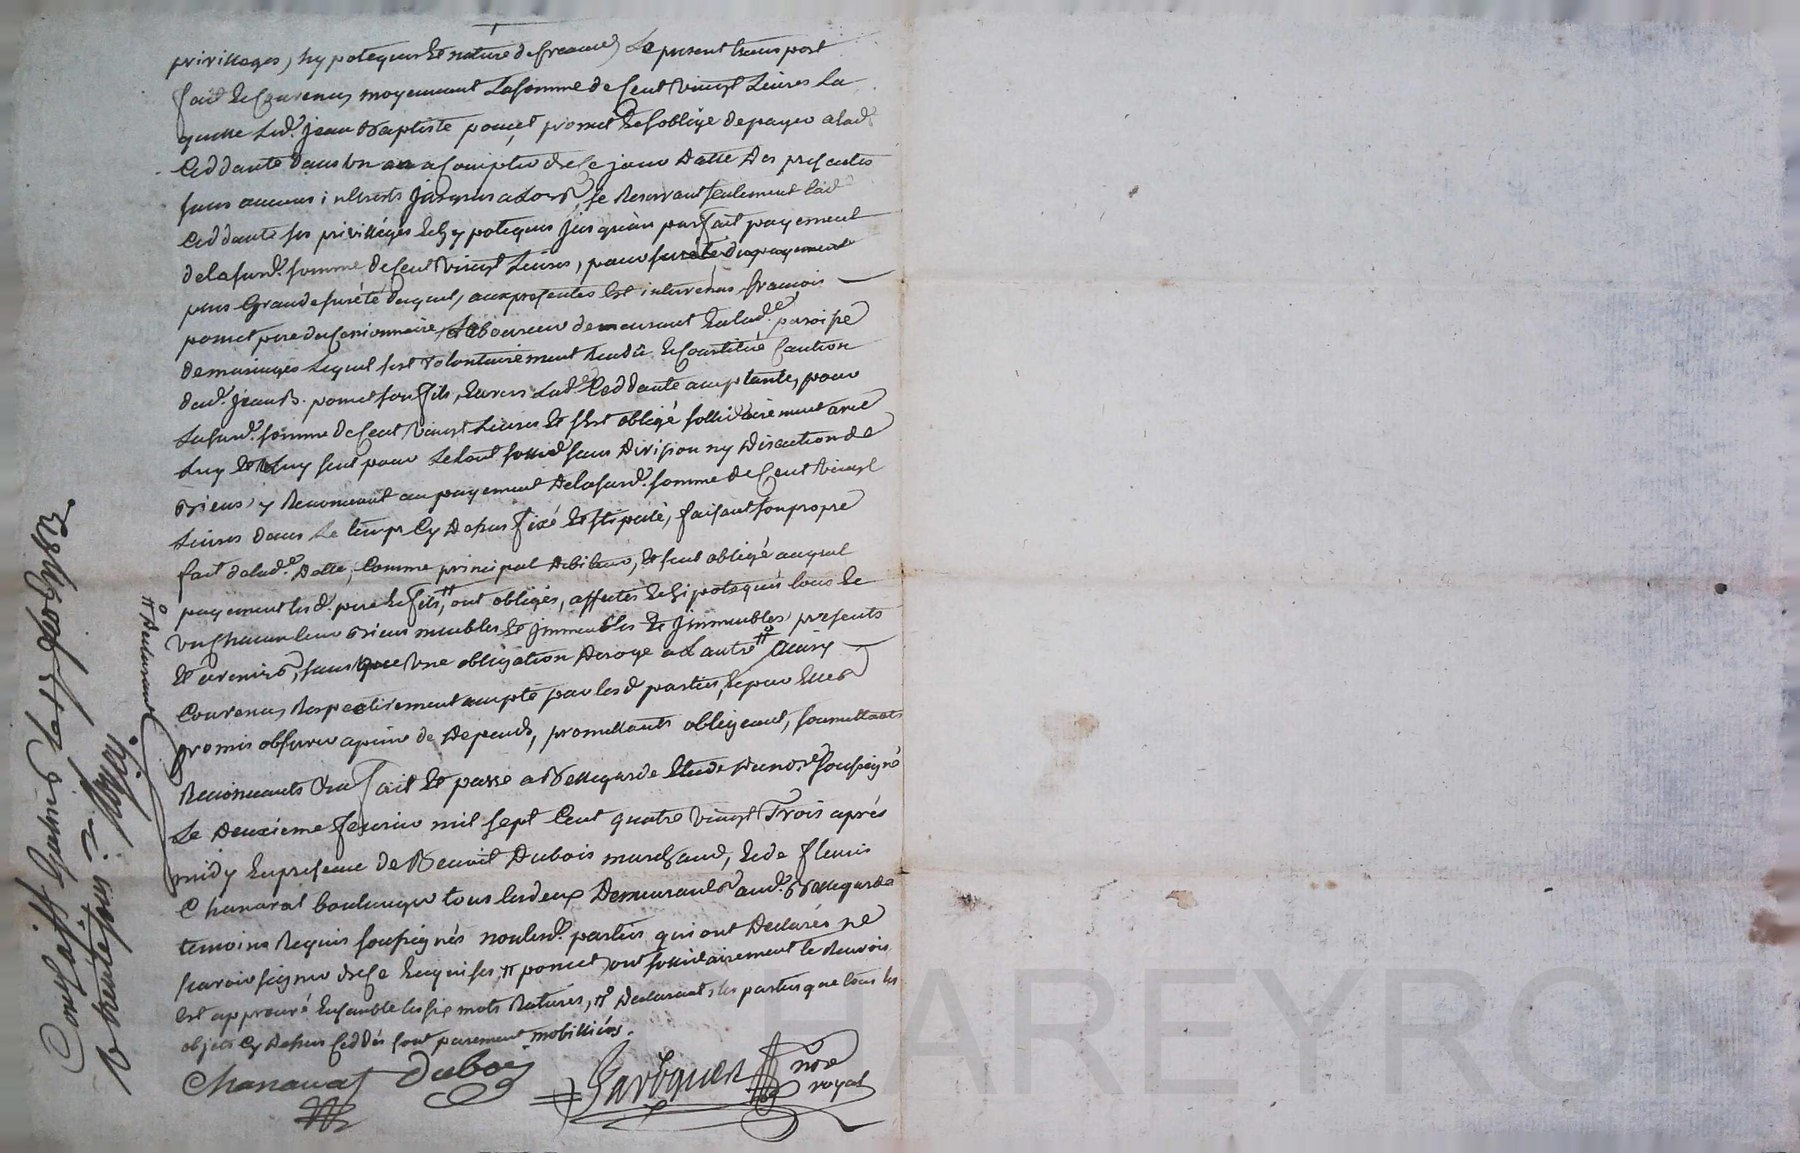 privilleges, hypoteques et nature de creance, Le present transport
fait et Convenus moyennant La somme de Cent vingt Livres La
quelle Led. Jean Baptiste poncet promet et s'oblige de payer a lad.
Ceddante dans un an a Compter de Ce jour datte des presentes
sans aucuns interests jusques alors, se Reservant seulement lad.
Ceddante ses privilléges et hypoteques jusqu'au parfait payement
de la susd. somme de Cent vingt Livres, pour sureté du payement
plus Grande sureté duquel, aux presentes est intervenus francois
poncet pere du Cessionnaire, Laboureur demeurant en lad. paroisse
de maringes Lequel s'est volontairement Rendu et Constitué Caution
dud. Jean B. poncet son fils, Envers Lad. Ceddante acceptante, pour
La susd. somme de Cent vingt Livres et s'est obligé sollidairement avec
Luy et Luy seul pour Le tout sans division ny discution de
Biens, y Renoncant au payement de la susd. somme de Cent vingt
Livres dans Le temps Cy dessus fixé et stipulé, faisant son propre
fait de lad. dette, Comme principal debiteur, et seul obligé auquel
payement lesd. pere et fils, ont obligés, affectés et hipotequés tous et
un Chacun leur Biens meubles et immeubles presents
et avenirs, sans que une obligation deroge a L'autre Ainsy
Convenus Respectivement accepté par lesd. parties, et par Elles
promis observer a peine de depends, promettants obligeant, soumettants
Renoncants &a fait et passé a Bellegarde Etude du no.re soussigné
Le deuxieme fevrier mil sept Cent quatre vingt Trois aprés
midy En presence de Benoit Dubois marchand, et de fleuris
Chanavat boulanger tous les deux Demeurants aud. Bellegarde
temoins Requis soussignés non lesd. parties qui ont declarés ne
scavoir signer de Ce Enquises, poncet, ont sollidairement le Renvois
Est approuvé Ensemble les six mots Raturés, declarants, les parties que tous les
objets Cy dessus Ceddés sont purement mobilliers.
Chanavat Dubois nore
royal
declarants
Con.lé a St Galmier Le 14 feb. 1783
R trente sous